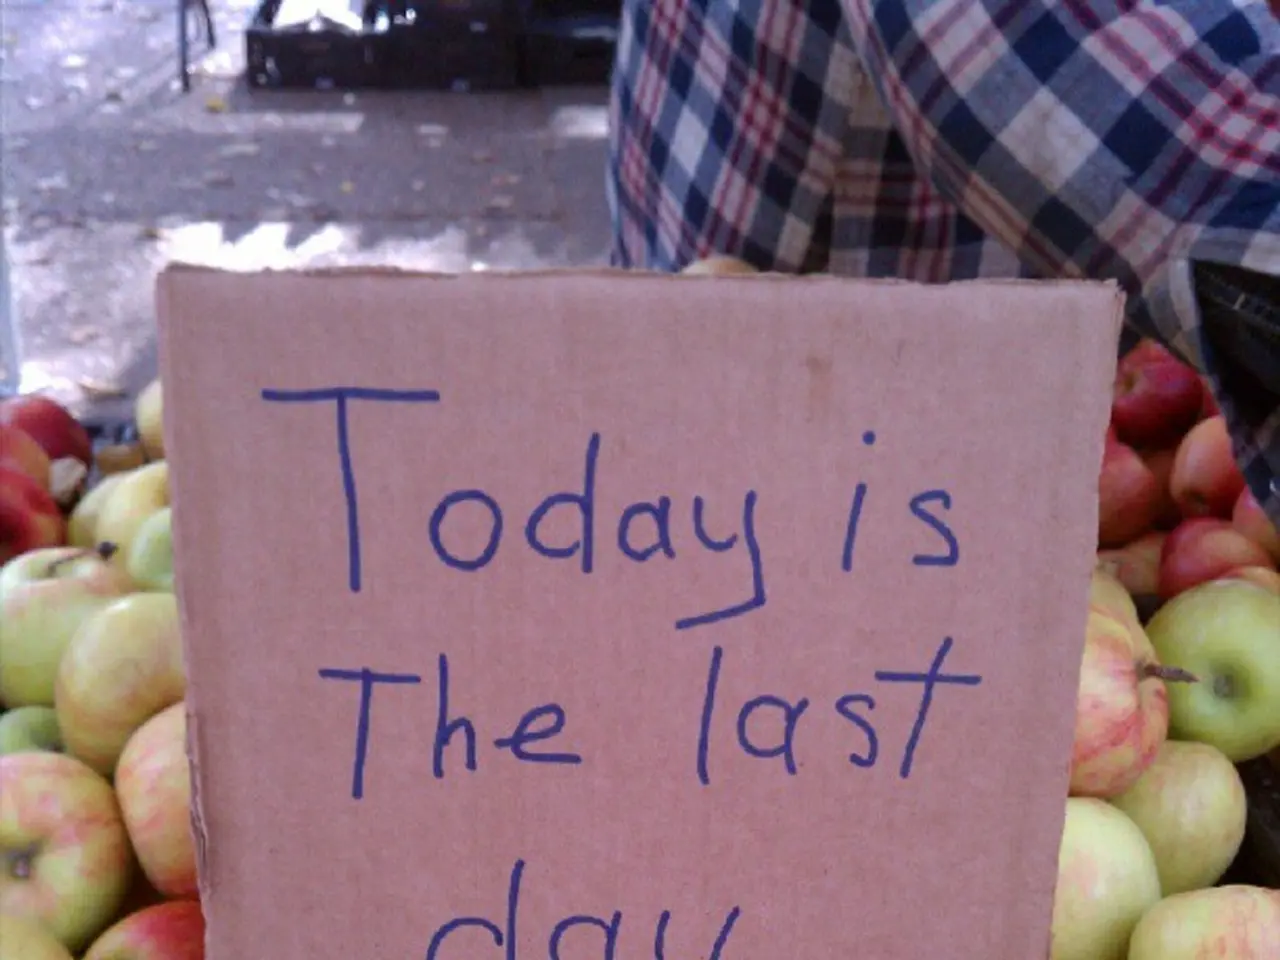 Today is
The last
day